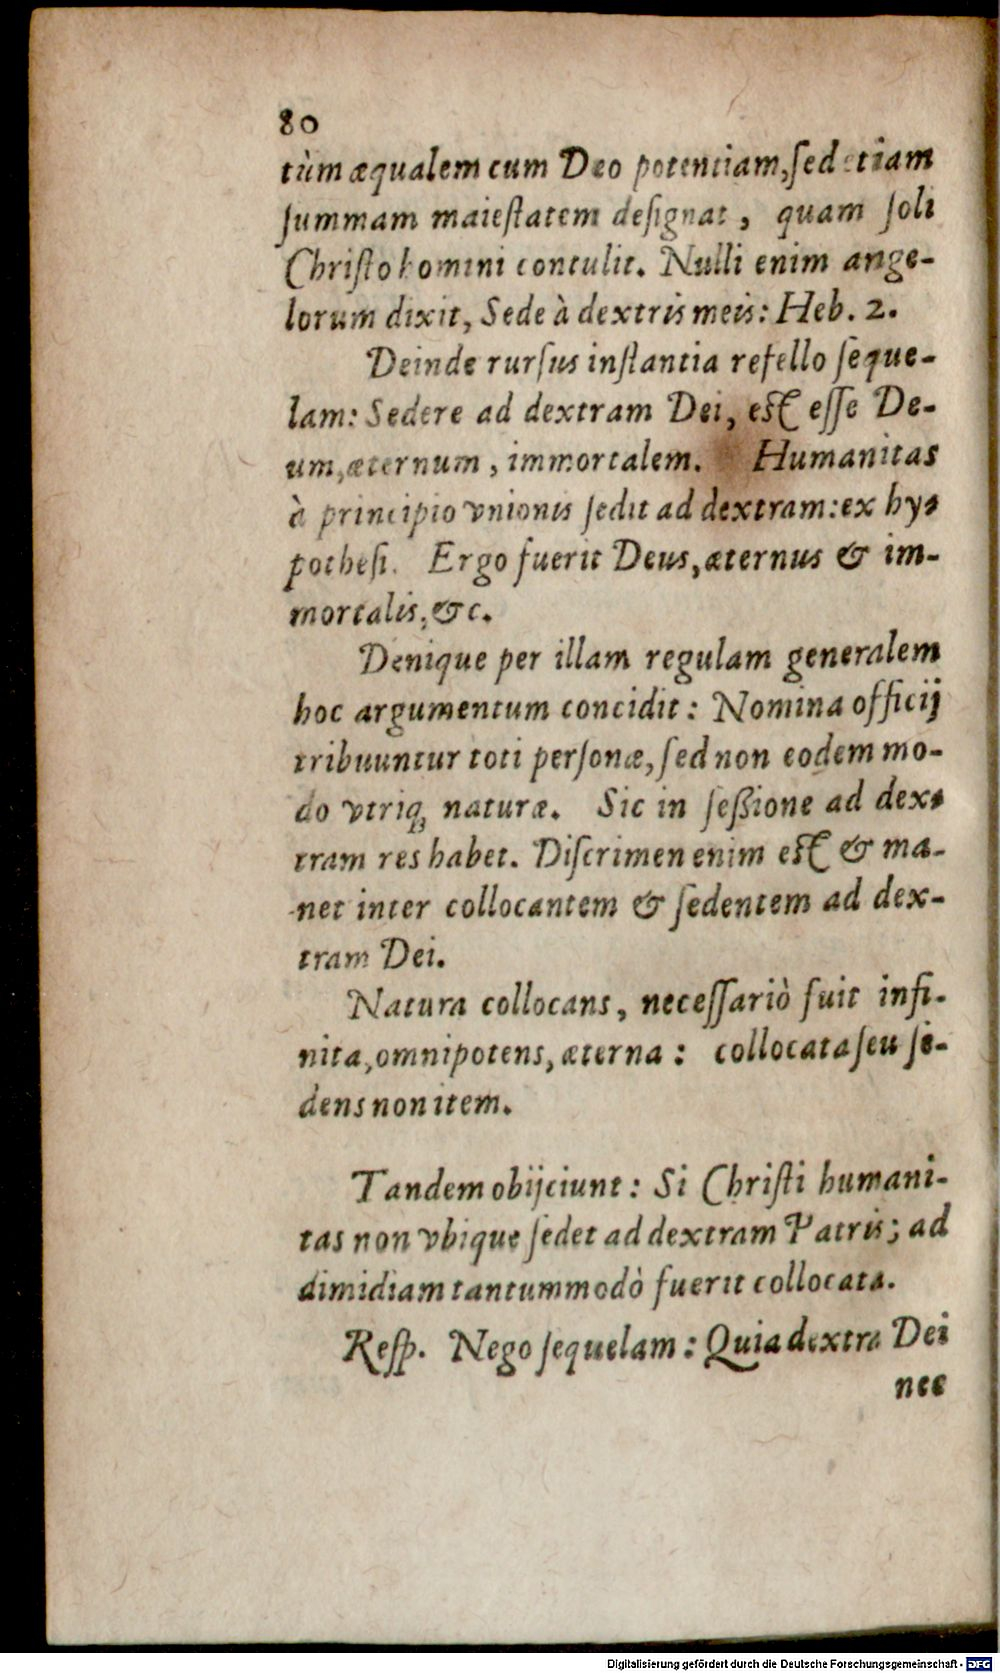 80
tùm æqualem cum Deo potentiam, sed etiam
summam maiestatem designat, quam soli
Christo homini contulit. Nulli enim ange-
lorum dixit, Sede à dextris meis: Heb. 2.
Deinde rursus instantia refello seque-
lam: Sedere ad dextram Dei, est esse De-
um, æternum, immortalem. Humanitas
à principio vnionis sedit ad dextram: ex hy-
pothesi. Ergo fuerit Deus, æternus & im-
mortalis, &c.
Denique per illam regulam generalem
hoc argumentum concidit: Nomina officij
tribuuntur toti personæ, sed non eodem mo-
do vtriq; naturæ. Sic in seßione ad dex-
tram res habet. Discrimen enim est & ma-
net inter collocantem & sedentem ad dex-
tram Dei.
Natura collocans, necessariò fuit infi-
nita, omnipotens, æterna: collocata seu se-
dens non item.
Tandem obijciunt: Si Christi humani-
tas non vbique sedet ad dextram Patris; ad
dimidiam tantummodò fuerit collocata.
Resp. Nego sequelam: Quia dextra Dei
nec
Digitalisierung gefördert durch die Deutsche Forschungsgemeinschaft - DFG